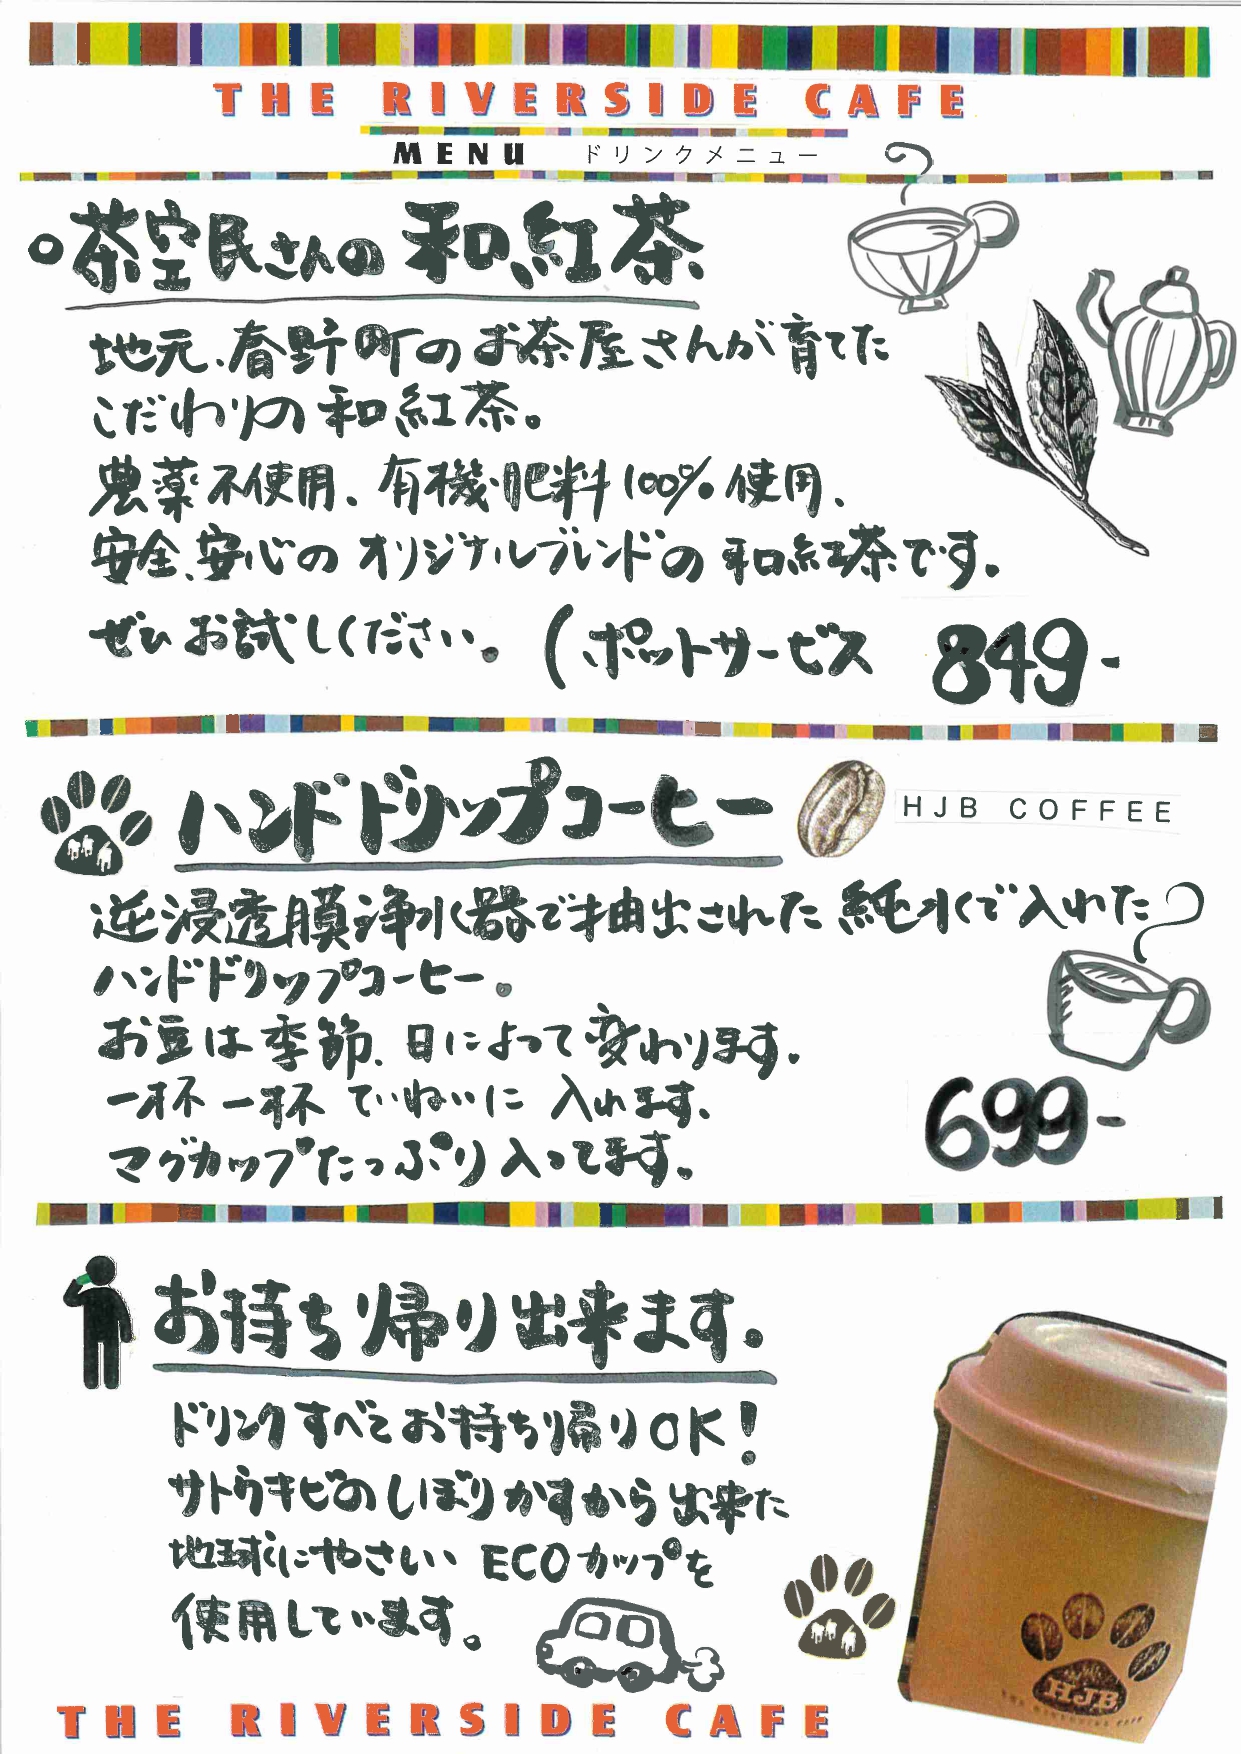 THE RIVERSIDE CAFE
MENU ドリンクメニュー
茶空民さんの和紅茶
地元、春野町のお茶屋さんが育てた
こだわりの和紅茶。
農薬不使用、有機肥料100%使用、
安全、安心のオリジナルブレンドの和紅茶です。
ぜひお試しください。(ポットサービス 849-
ハンドドリップコーヒー HJB COFFEE
逆浸透膜浄水器で抽出された純水で入れた
ハンドドリップコーヒー。
お豆は季節、日によって変わります。
一杯一杯ていねいに入れます。
699-
マグカップたっぷり入ってます。
お持ち帰り出来ます。
ドリンクすべてお持ち帰りOK!
サトウキビのしぼりかすから出来た
地球にやさしい ECOカップを
使用しています。
HJB
THE RIVERSIDE CAFE
THE RIVERSIDE CAFE